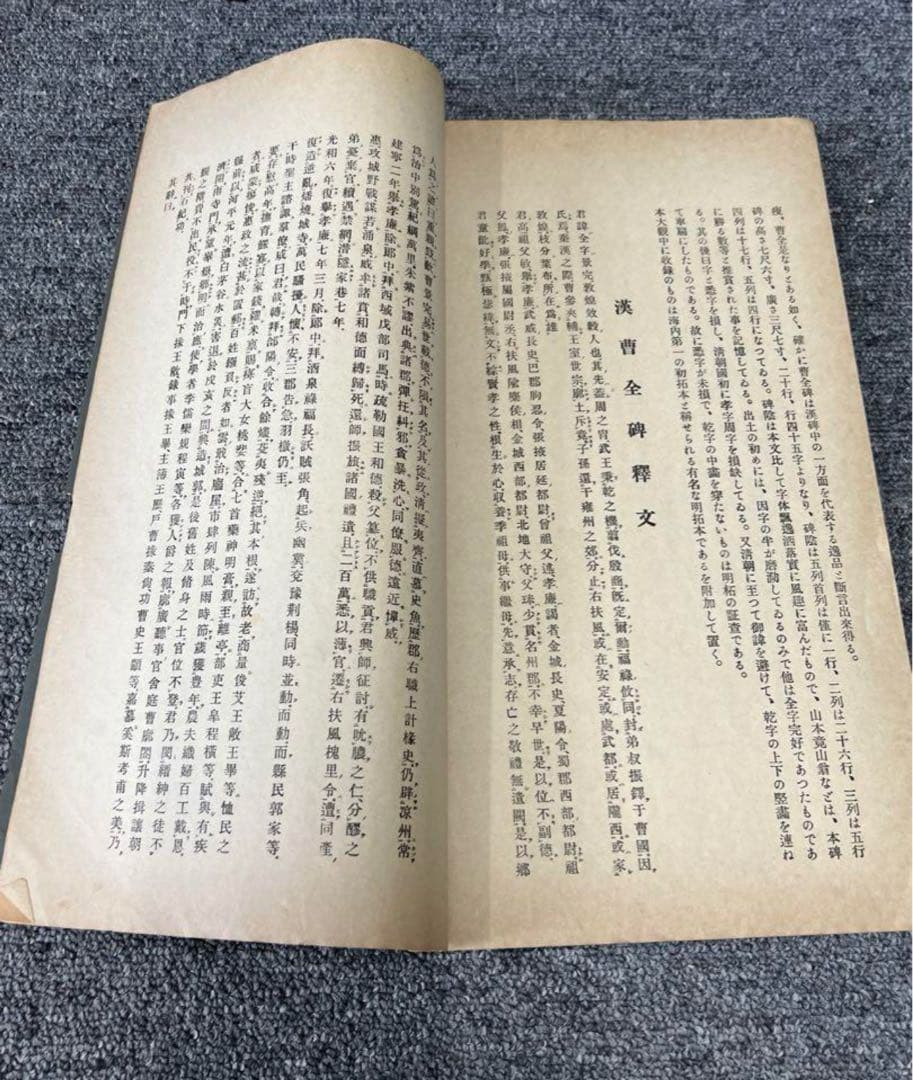 瘦、曹全是なりとある如く、確かに曹全碑は漢碑中の一方面を代表する逸品と斷言出來得る。
碑の高さ七尺六寸、廣さ三尺七寸、二十行、行四十五字よりなり、碑陰は五列首列は僅に一行、二列は二十六行、三列は五行
四列は十七行、五列は四行になつてゐる。碑陰は本文比して字体飄逸洒落實に風趣に富んだもので、山本竟山翁などは、本碑
に勝る數等と推賞された事を記憶してゐる。出土の初めには、因字の半が磨泐してゐるのみで他は全字完好であつたものであ
る。其の後曰字と悉字を損し、淸朝國初に孝字周字を損缺してゐる。又淸朝に至つて御諱を避けて、乾字の上下の竪畫を連ね
て車扁にしたものである。故に悉字が未損で、乾字の中畫を穿たないものは明柘の証査である。
本大觀中に收錄のものは海內第一の初拓本と稱せられる有名な明拓本であるを附加して置く。
漢曹全碑釋文
君諱全字景完敦煌效穀人也其先蓋周之冑武王秉乾之機翦伐殷商旣定爾勳福祿攸同封弟叔振鐸于曹國因
氏焉秦漢之際曹參夾輔王室世宗廓土斥竟子孫遷于雍州之郊分止右扶風或在安定或處武都或居隴西或家
敦煌枝分葉布所在爲雄
君高祖父敏舉孝廉武威長史巴郡朐忍令張掖居延都尉曾祖父述孝廉謁者金城長史夏陽令蜀郡西部都尉祖
父鳳孝廉張掖屬國都尉丞右扶風隃麋侯相金城西部都尉北地大守父琫少貫名州郡不幸早世是以位不副德
君童齔好學甄極毖緯無文不綜賢孝之性根生於心收養季祖母供事繼母先意承志存亡之敬禮無遺闕是以鄕
人爲之諺曰重親致歡曹景完易世載德不隕其名及其從政淸擬夷齊直慕史魚歷郡右職上計掾史仍辟凉州常
爲治中別駕紀綱萬里朱紫不謬出典諸郡彈枉糾邪貪暴洗心同僚服德遠近憚威
建寧二年舉孝廉除郞中拜西域戊部司馬時疏勒國王和德殺父簒位不供職貢君興師征討有吮膿之仁分醪之
惠攻城野戰謀若涌泉威牟諸賁和德面縛歸死還師振旅諸國禮遺且二百萬悉以薄官遷右扶風槐里令遭同產
弟憂棄官續遇禁網潛隱家巷七年
光和六年復舉孝廉七年三月除郞中拜酒泉祿福長訞賊張角起兵幽冀兗豫荆楊同時並動而縣民郭家等
復造逆亂燔燒城寺萬民騷擾人懷不安三郡告急羽檄仍至
于時聖主諮諏羣僚咸曰君哉轉拜郃陽令收合餘燼芟夷殘迸絕其本根遂訪故老商量儁艾王敞王畢等恤民之
要存慰高年撫育鰥寡以家錢糴米粟賜癃盲大女桃婓等合七首藥神明膏親至離亭部吏王皐程橫等賦與有疾
者咸蒙瘳悛惠政之流甚於置郵百姓繦負反者如雲戢治廧屋市肆列陳風雨時節歲獲豐年農夫織婦百工戴恩
縣前以河平元年遭白茅谷水災害退於戌亥之間興造城郭是後舊姓及脩身之士官位不登君乃閔縉紳之徒不
濟開南寺門承望華嶽鄕明而治庶使學者李儒欒規程寅等各獲人爵之報廓廣聽事官舍庭曹廊閣升降揖讓朝
覲之階費不出民役不干時門下掾王敞錄事掾王畢主簿王歷戶曹掾秦尙功曹史王顓等嘉慕奚斯考甫之美乃
共刊石紀功
其辭曰